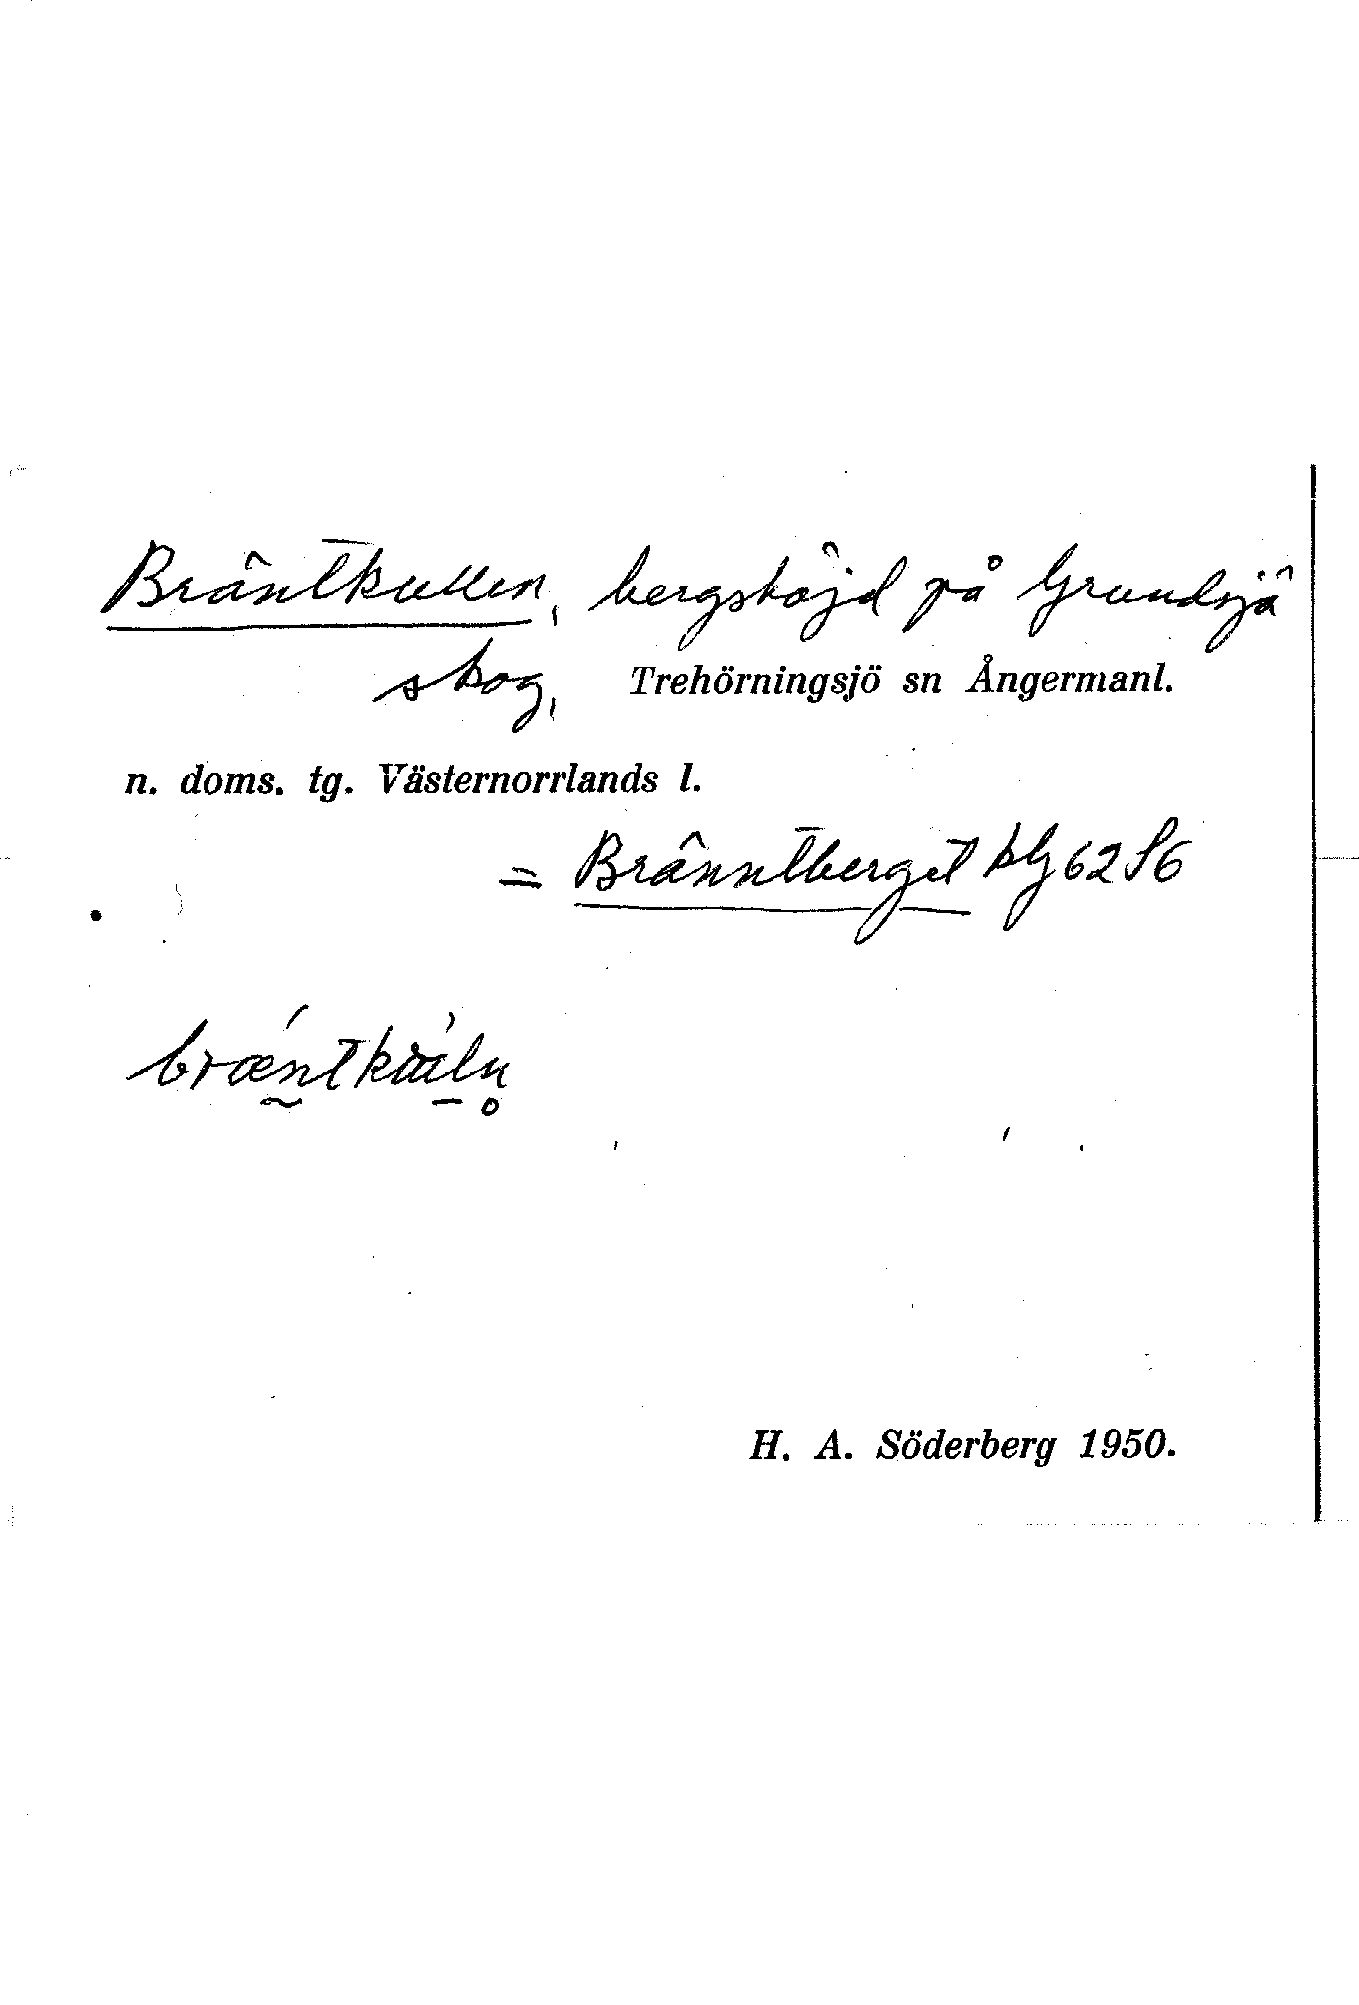 Bräntkullen, bergshöjd på Grundsjö
skog, Trehörningsjö sn Ångermanl.
n. doms. tg. Västernorrlands l.
= Bränntberget blg 62 S6
H. A. Söderberg 1950.